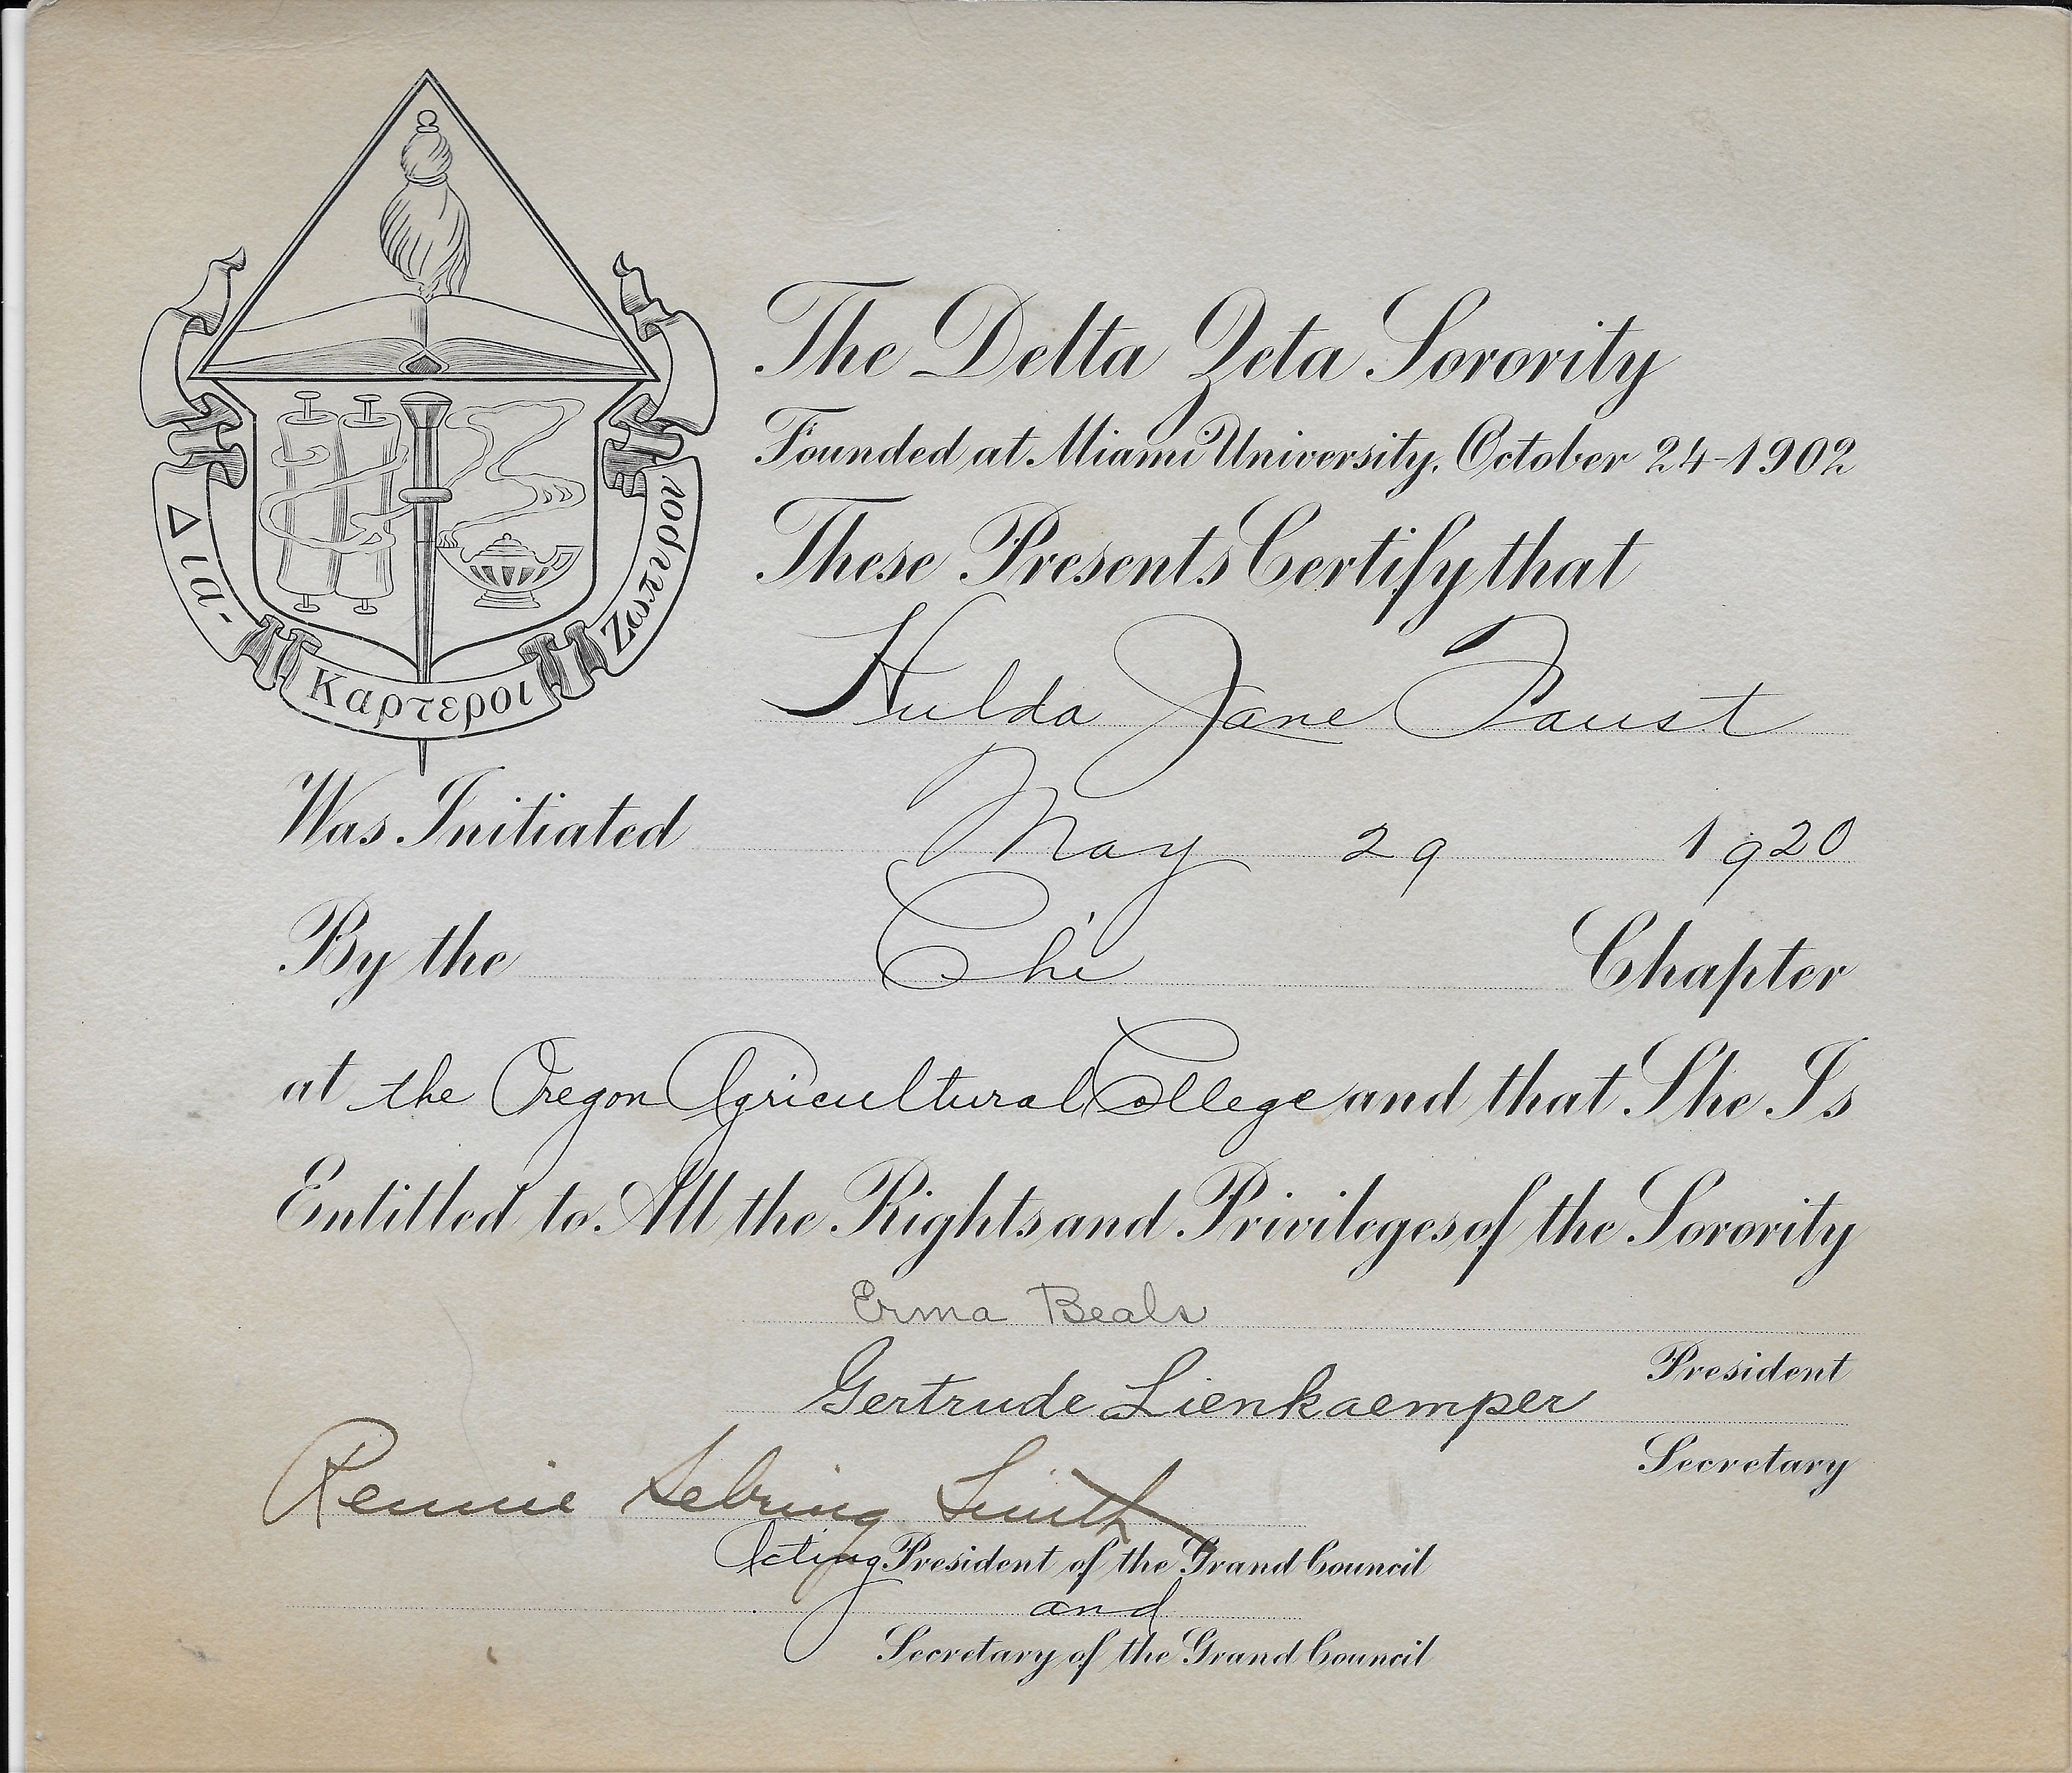 Δια-
Καρτεροι
Ζωτικροι
The Delta Zeta Sorority
Founded at Miami University, October 24-1902
These Presents Certify that
Hulda Jane Faust
Was Initiated May 29 1920
By the Chi Chapter
at the Oregon Agricultural College and that She Is
Entitled to All the Rights and Privileges of the Sorority
Erma Beals
President
Gertrude Lienkaemper
Secretary
Rennie Sebring Smith
Acting President of the Grand Council
and
Secretary of the Grand Council